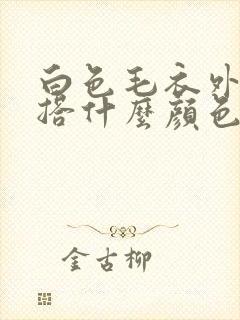 白色毛衣外
搭什麼顏色
金古柳